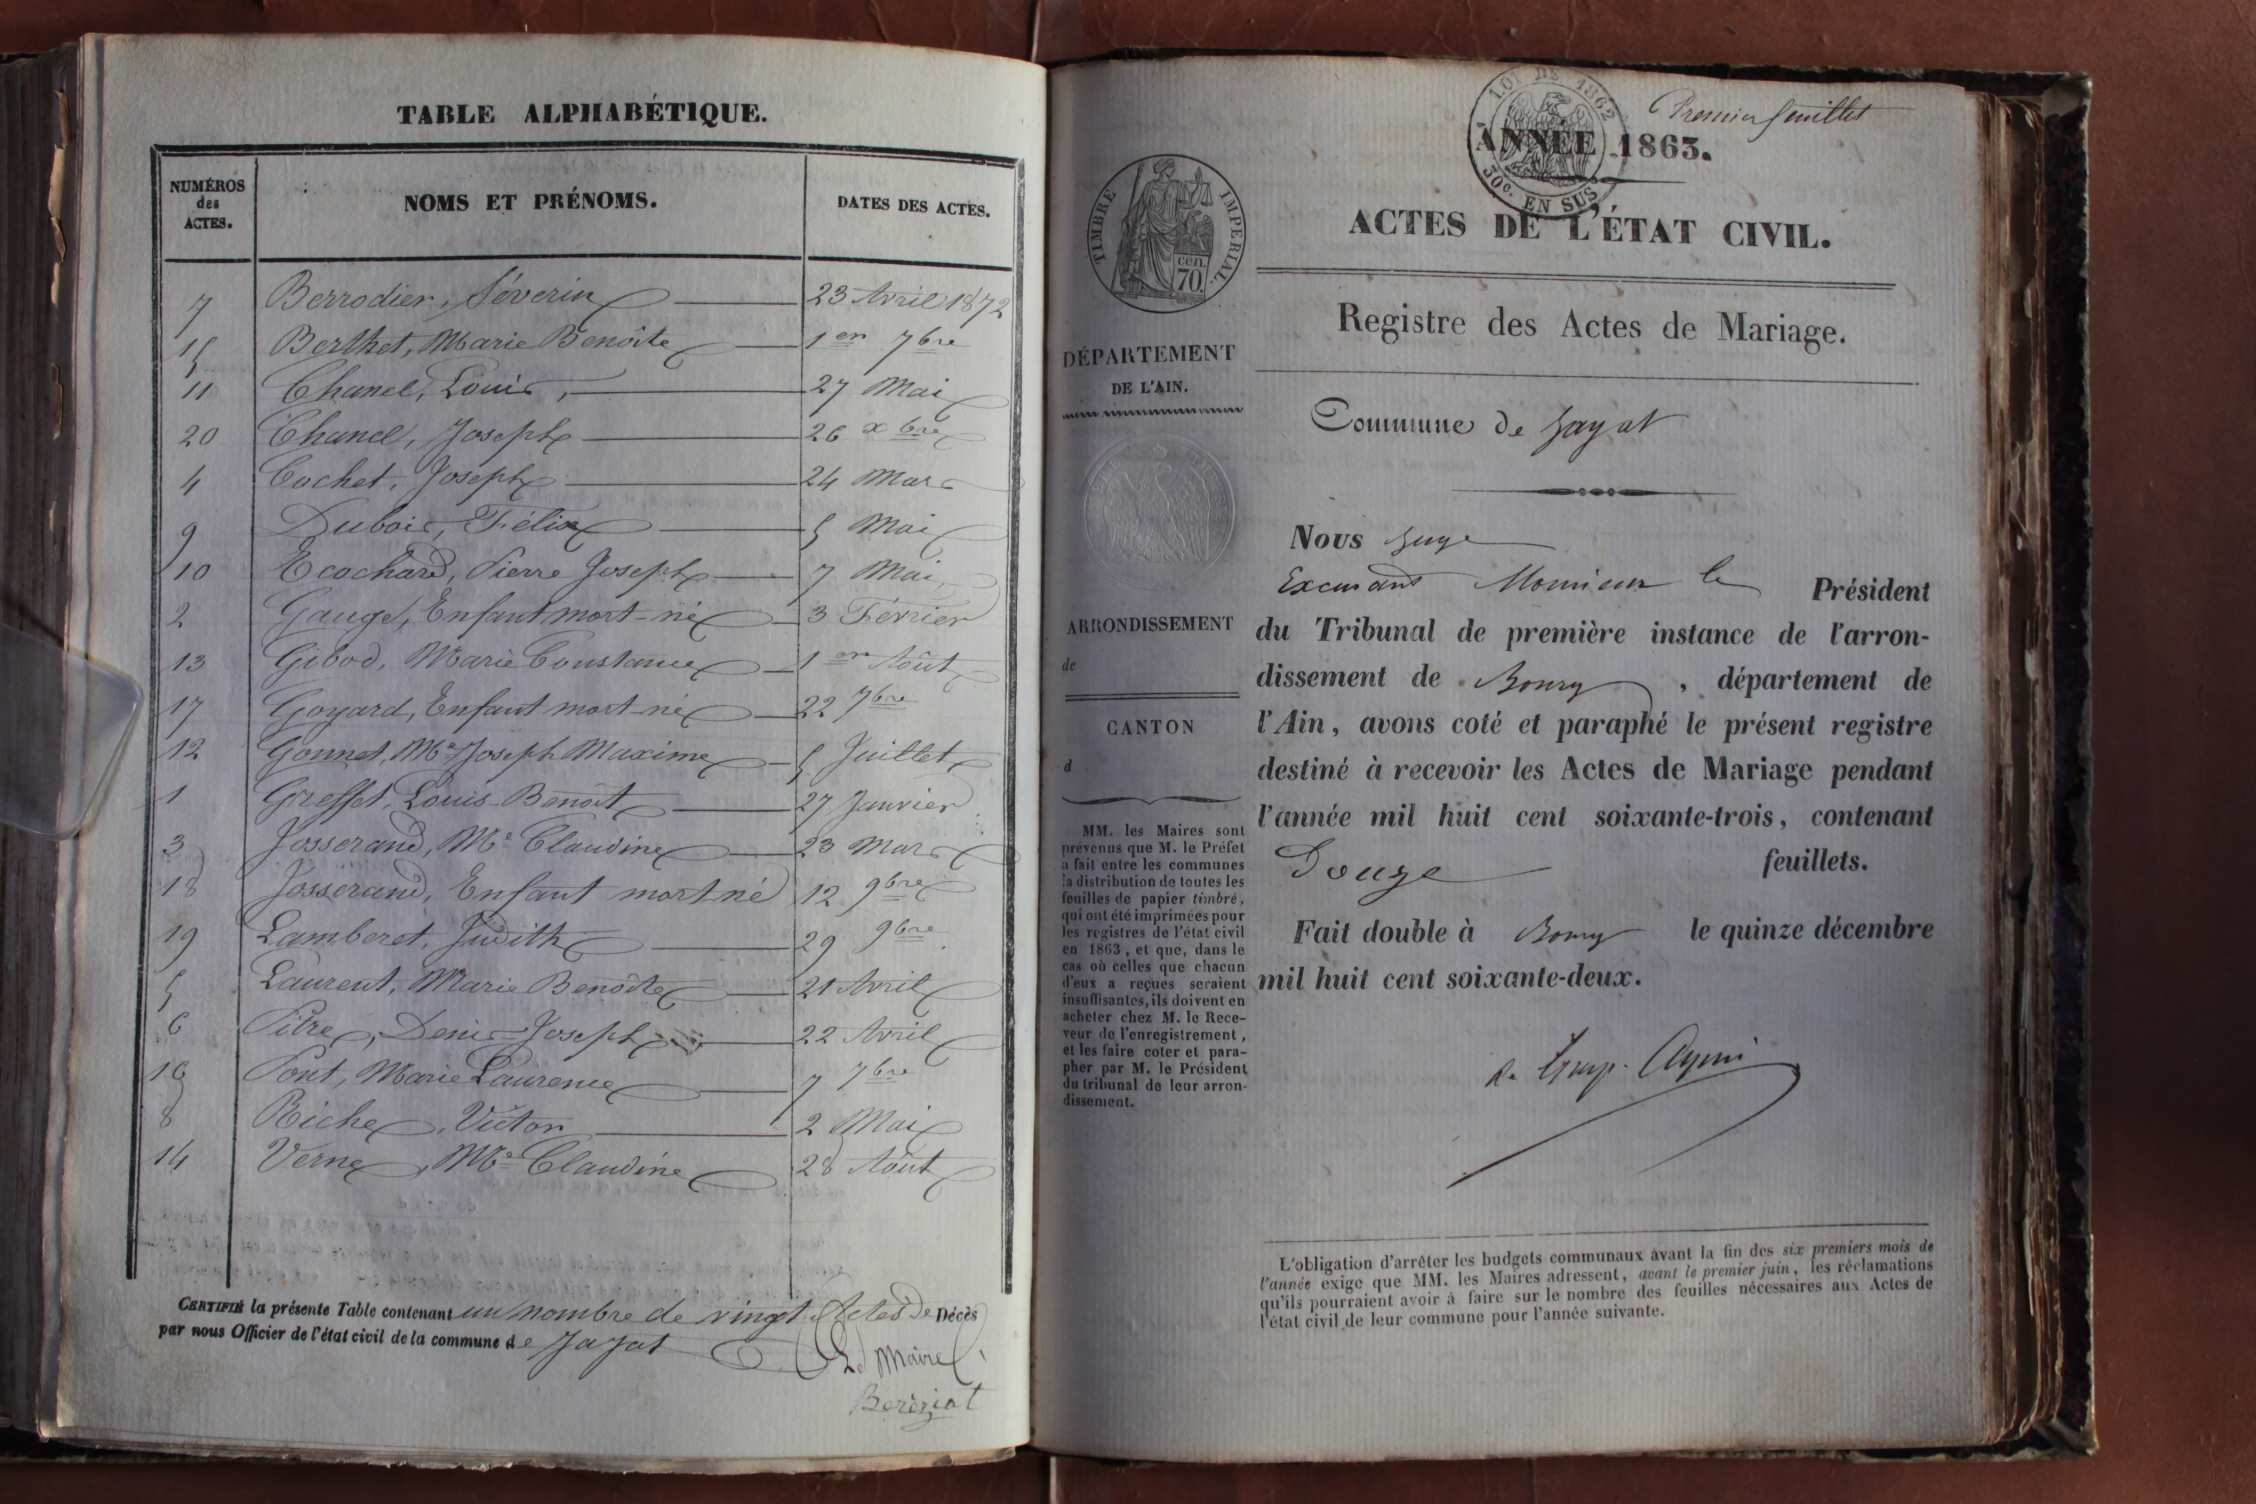 TABLE ALPHABÉTIQUE.
NUMÉROS
des
ACTES.
NOMS ET PRÉNOMS.
DATES DES ACTES.
7 Berrodier, Séverin 23 Avril 1872
15 Berthet, Marie Benoîte 1er 7bre
11 Chanel, Louis, 27 Mai
20 Chanel, Joseph 26 xbre
4 Cochet, Joseph 24 Mars
9 Dubois, Félix 5 Mai
10 Ecochard, Pierre Joseph 7 Mai
2 Gauge, Enfant mort-né 3 Février
13 Gibod, Marie Constance 1er Août
17 Goyard, Enfant mort-né 22 7bre
12 Gonnet, Me Joseph Maxime 5 Juillet
1 Greffet, Louis-Benoît 27 Janvier
3 Josserand, Me Claudine 23 Mars
18 Josserand, Enfant mort né 12 9bre
19 Lamberet, Judith 29 9bre
5 Laurent, Marie Benoîte 21 Avril
6 Pitre, Denis-Joseph 22 Avril
16 Pont, Marie Laurence 7 7bre
8 Riche, Victor 2 Mai
14 Verne, Me Claudine 28 Août
CERTIFIÉ la présente Table contenant un nombre de vingt Actes de Décès
par nous Officier de l'état civil de la commune de Jayat
Le Maire
Beréziat
Premier feuillet
LOI DE 1862
30c. EN SUS
ANNÉE 1863.
ACTES DE L'ÉTAT CIVIL.
Registre des Actes de Mariage.
Commune de Jayat
TIMBRE IMPERIAL.
cen.
70.
DÉPARTEMENT
DE L'AIN.
ARRONDISSEMENT
de
CANTON
d
MM. les Maires sont
prévenus que M. le Préfet
a fait entre les communes
la distribution de toutes les
feuilles de papier timbré,
qui ont été imprimées pour
les registres de l'état civil
en 1863, et que, dans le
cas où celles que chacun
d'eux a reçues seraient
insuffisantes, ils doivent en
acheter chez M. le Rece-
veur de l'enregistrement,
et les faire coter et para-
pher par M. le Président
du tribunal de leur arron-
dissement.
Nous Juge
Excusant Monsieur le Président
du Tribunal de première instance de l'arron-
dissement de Bourg, département de
l'Ain, avons coté et paraphé le présent registre
destiné à recevoir les Actes de Mariage pendant
l'année mil huit cent soixante-trois, contenant
Douze feuillets.
Fait double à Bourg le quinze décembre
mil huit cent soixante-deux.
L'obligation d'arrêter les budgets communaux avant la fin des six premiers mois de
l'année exige que MM. les Maires adressent, avant le premier juin, les réclamations
qu'ils pourraient avoir à faire sur le nombre des feuilles nécessaires aux Actes de
l'état civil de leur commune pour l'année suivante.